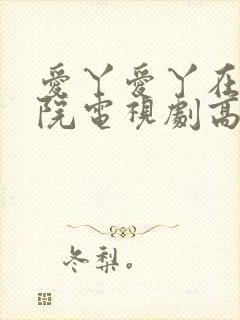 愛丫愛丫在
院電視劇高
冬梨。